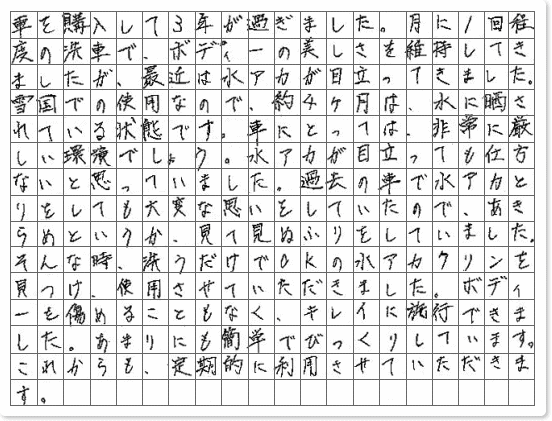 車を購入して3年が過ぎました。月に1回程
度の洗車で、ボディーの美しさを維持してき
ましたが、最近は水アカが目立ってきました。
雪国での使用なので、約4ケ月は、水に晒さ
れている状態です。車にとっては、非常に厳
しい環境でしょう。水アカが目立っても仕方
ないと思っていました。過去の車で水アカと
りをしても大変な思いをしていたので、あき
らめというか、見て見ぬふりをしていました。
そんな時、洗うだけでOKの水アカクリンを
見つけ、使用させていただきました。ボディ
ーを傷めることもなく、キレイに施行できま
した。あまりにも簡単でびっくりしています。
これからも、定期的に利用させていただきま
す。